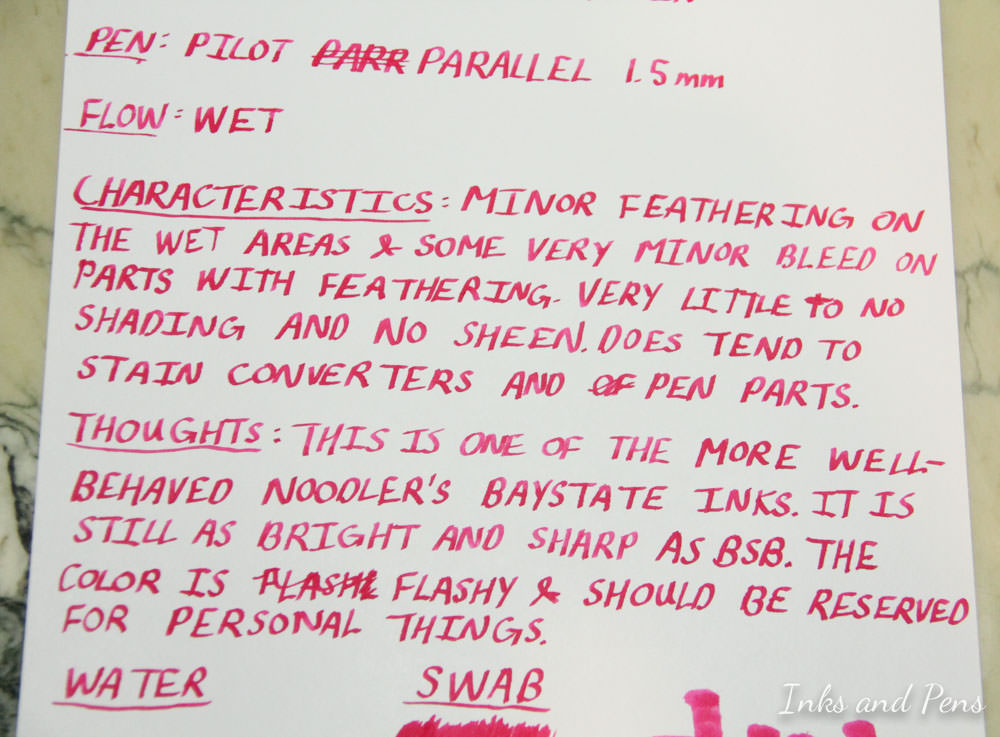 PEN: PILOT PARR PARALLEL 1.5mm
FLOW: WET
CHARACTERISTICS: MINOR FEATHERING ON
THE WET AREAS & SOME VERY MINOR BLEED ON
PARTS WITH FEATHERING. VERY LITTLE to NO
SHADING AND NO SHEEN. DOES TEND TO
STAIN CONVERTERS AND OF PEN PARTS.
THOUGHTS: THIS IS ONE OF THE MORE WELL-
BEHAVED NOODLER'S BAYSTATE INKS. IT IS
STILL AS BRIGHT AND SHARP AS BSB. THE
COLOR IS FLASHY & SHOULD BE RESERVED
FOR PERSONAL THINGS.
WATER SWAB
Inks and Pens